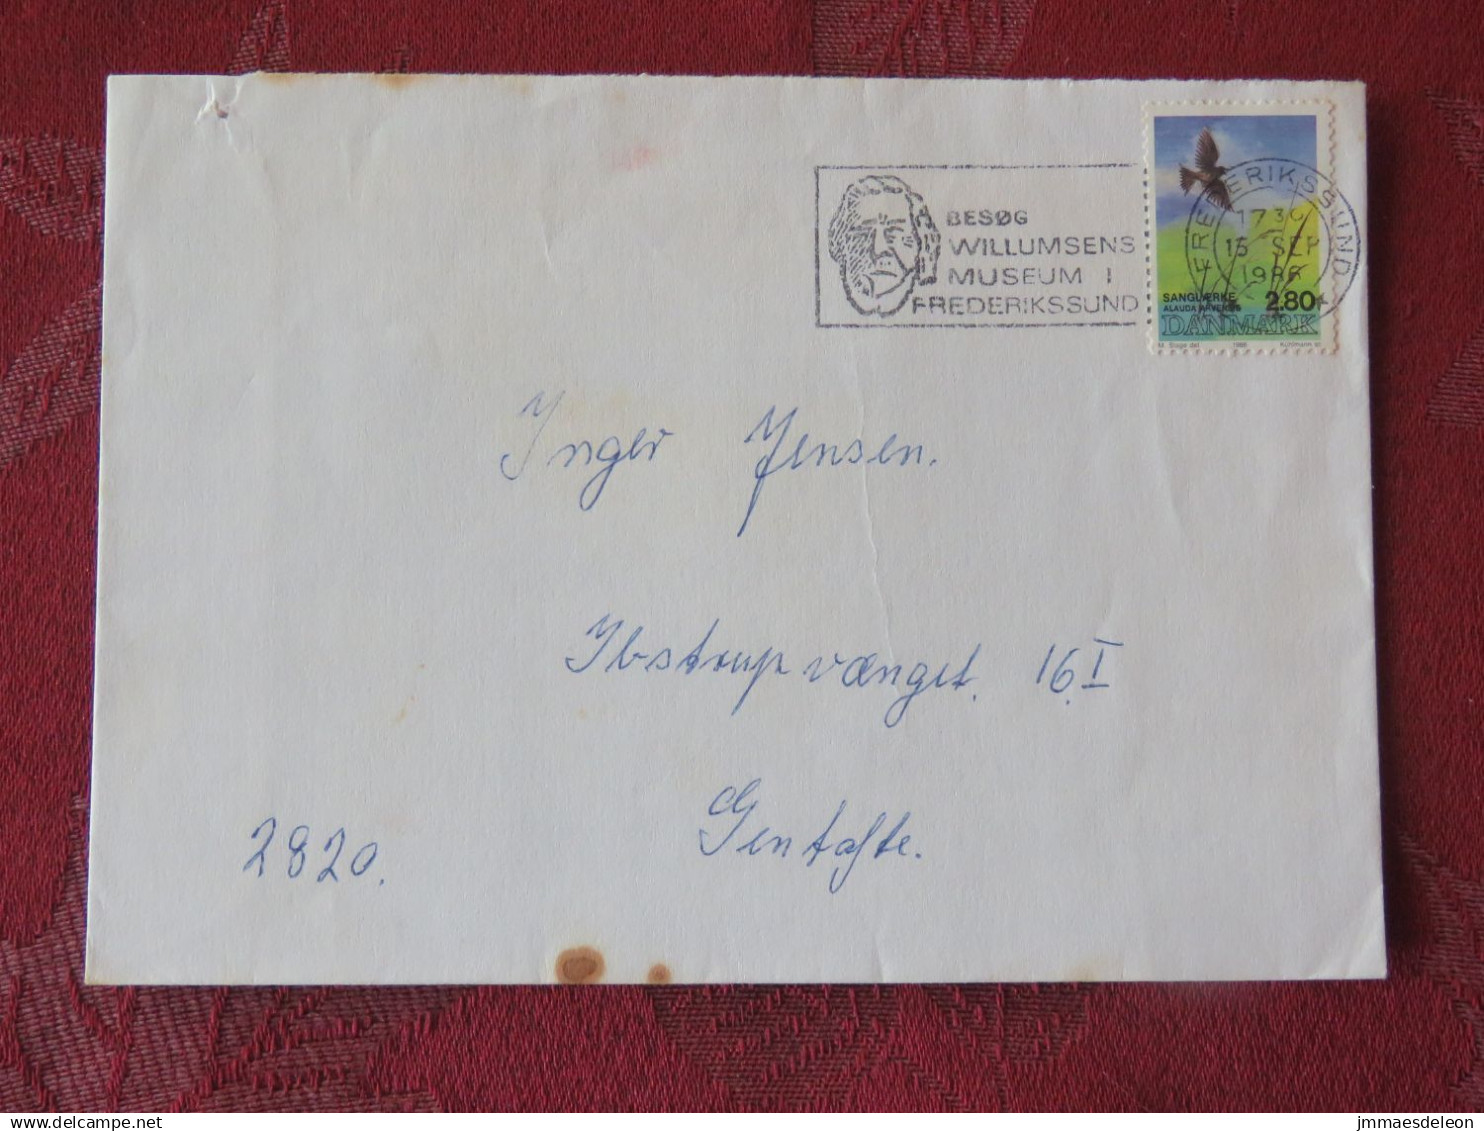 BESØG
WILLUMSENS
MUSEUM I
FREDERIKSSUND
FREDERIKSSUND
1730
15 SEP
1986
SANGLÆRKE
ALAUDA ARVENSIS
2.80
DANMARK
1986
Inger Jensen.
Ibstrupvænget. 16. I
Gentofte.
2820.
delcampe.net
jmmaesdeleon